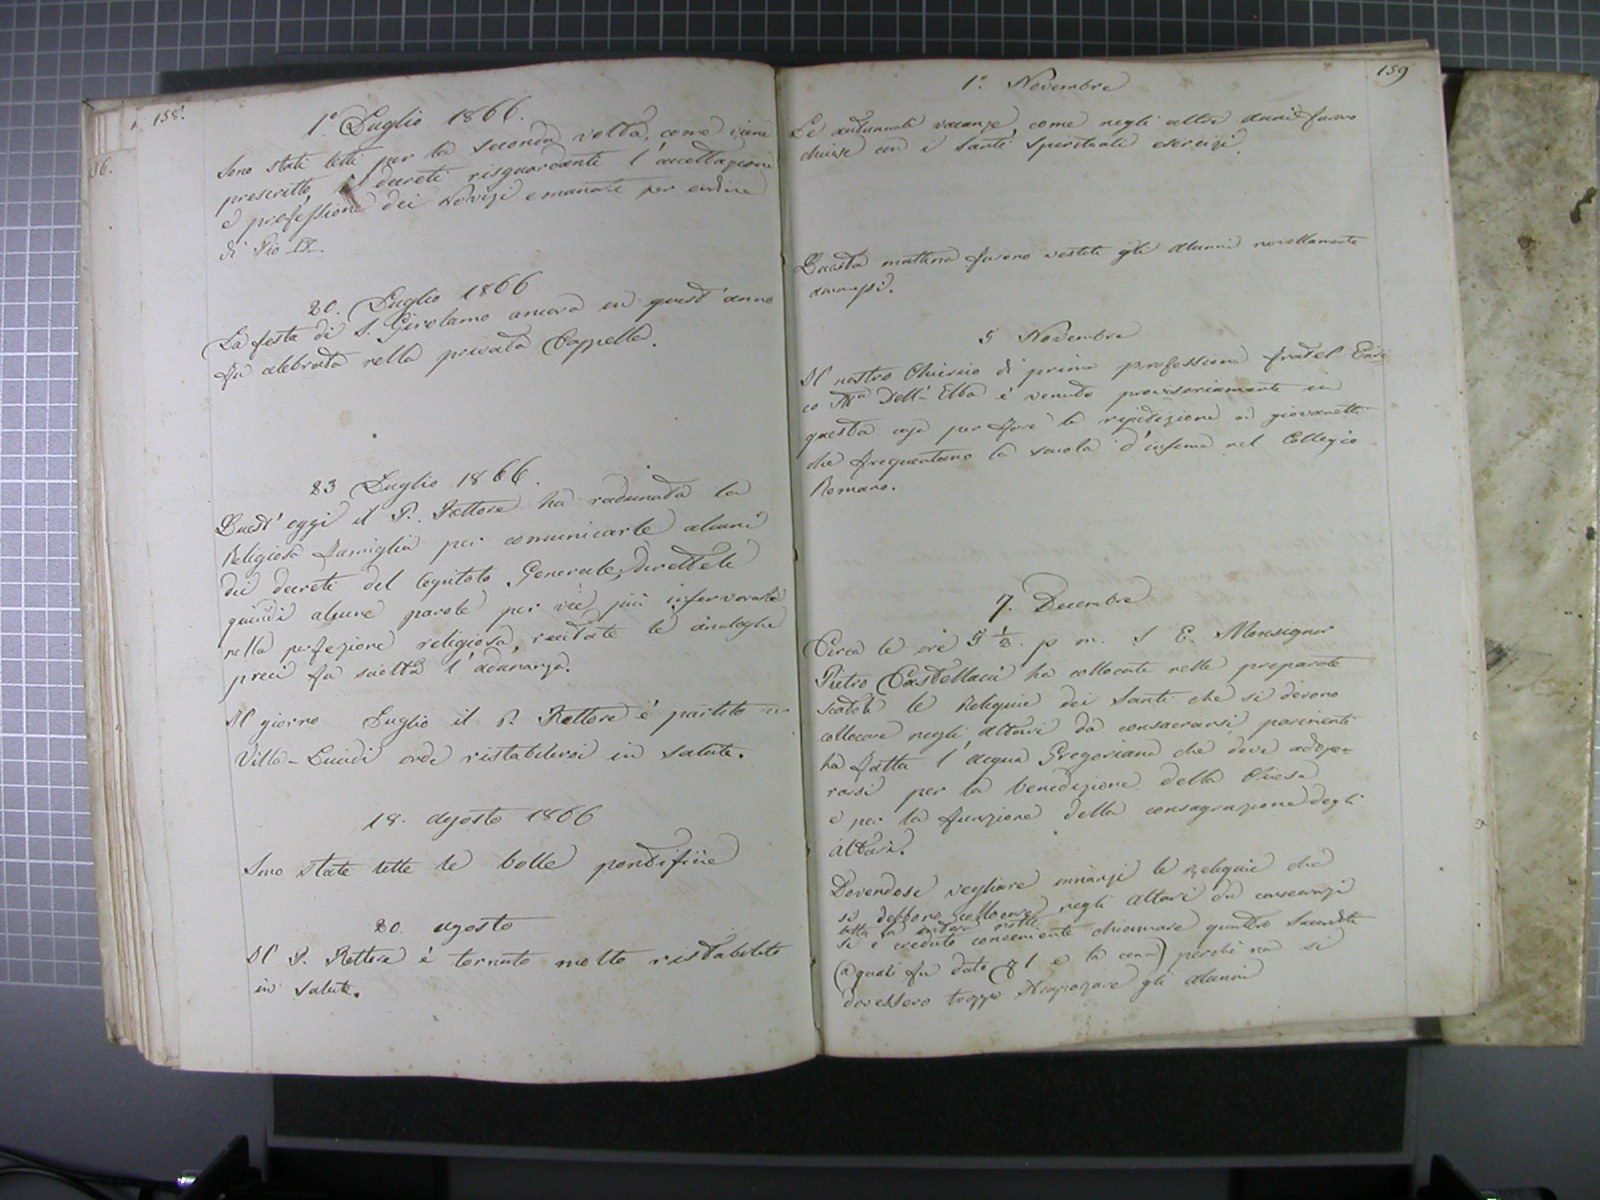 158.
1.° Luglio 1866.
Sono stati letti per la seconda volta, come viene
prescritto, i decreti risguardanti l'accettazione
e professione dei Novizi emanati per ordine
di Pio IX.
20. Luglio 1866
La festa di S. Girolamo ancora in quest'anno
fu celebrata nella privata Cappella.
23 Luglio 1866.
Quest'oggi il P. Rettore ha radunata la
Religiosa famiglia per comunicarle alcuni
dei decreti del Capitolo Generale, direttele
quindi alcune parole per vie più infervorarle
nella perfezione religiosa, recitate le analoghe
preci fu sciolta l'adunanza.
Il giorno Luglio il P. Rettore è partito
Villa-Lucidi onde ristabilirsi in salute.
18. agosto 1866
Sono state lette le bolle pontificie
20. agosto
Il P. Rettore è tornato molto ristabilito
in salute.
86.
159
1.° Novembre
Le autunnali vacanze come negli altri anni furono
chiuse con i Santi Spirituali esercizi.
Questa mattina furono vestiti gli alunni novellamente
ammessi.
5 Novembre
Il nostro Chierico di prima professione fratel Enri
co Ma Dell'-Elba è venuto provvisoriamente in
questa casa per fare la ripetizione ai giovanetti
che frequentano la scuola d'infima nel Collegio
Romano.
7. Decembre
Circa le ore 5 1/2. p m. S E. Monsignor
Pietro Castellacci ha collocate nelle preparate
scatole le Reliquie dei Santi che si devono
collocare negli altari da consacrarsi, parimenti
ha fatta l'acqua Gregoriana che deve adope-
rarsi per la benedizione della Chiesa
e per la funzione della consagrazione degli
altari.
Dovendosi vegliare innanzi le reliquie che
si debbono collocare negli altari da consecrarsi
tutta la intera notte
si è creduto conveniente chiamare quattro Sacerdoti
(a quali fu dato 1 e la cena) perchè non si
dovessero troppo strapazzare gli alunni